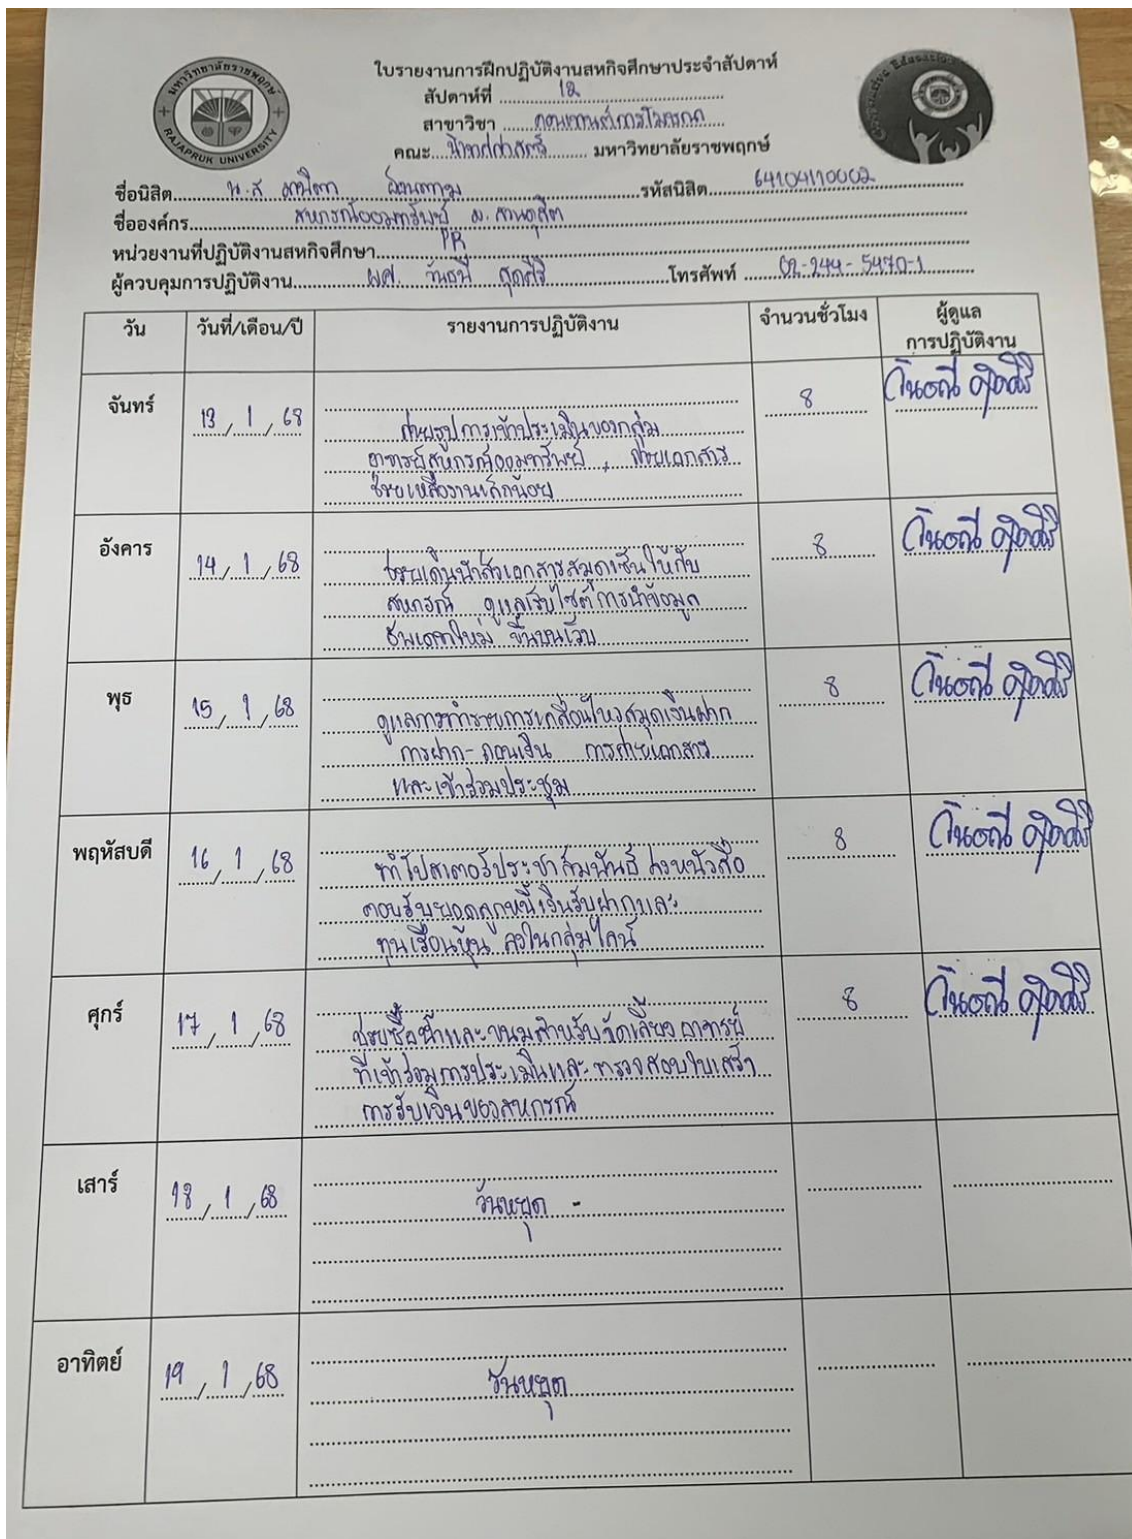 มหาวิทยาลัยราชพฤกษ์
RAJAPRUK UNIVERSITY
Cooperative Education
ใบรายงานการฝึกปฏิบัติงานสหกิจศึกษาประจำสัปดาห์
สัปดาห์ที่ 12
สาขาวิชา
คณะ นิเทศศาสตร์ มหาวิทยาลัยราชพฤกษ์
ชื่อนิสิต น.ส รหัสนิสิต 64104110002
ชื่อองค์กร สหกรณ์ออมทรัพย์ ม. สวนดุสิต
หน่วยงานที่ปฏิบัติงานสหกิจศึกษา PR
ผู้ควบคุมการปฏิบัติงาน ผศ. วันธณี สุดศิริ โทรศัพท์ 02-244-5470-1
วัน วันที่/เดือน/ปี รายงานการปฏิบัติงาน จำนวนชั่วโมง ผู้ดูแล
การปฏิบัติงาน
จันทร์ 13 / 1 / 68 8 วันธณี สุดศิริ
ถ่ายรูปการเข้าประเมินของกลุ่ม
อาจารย์สหกรณ์ออมทรัพย์ , ถ่ายเอกสาร
ช่วยเหลืองานเล็กน้อย
อังคาร 14 / 1 / 68 8 วันธณี สุดศิริ
ช่วยเดินนำส่งเอกสารสมุดเซ็นให้กับ
สหกรณ์ ดูแลเว็บไซต์การนำข้อมูล
อัพเดทใหม่ ขึ้นบนเว็บ
พุธ 15 / 1 / 68 8 วันธณี สุดศิริ
ดูแลการทำรายการเคลื่อนไหวสมุดเงินฝาก
การฝาก-ถอนเงิน การถ่ายเอกสาร
และเข้าร่วมประชุม
พฤหัสบดี 16 / 1 / 68 8 วันธณี สุดศิริ
ทำโปสเตอร์ประชาสัมพันธ์ ส่งหนังสือ
ตอบรับยอดลูกหนี้เงินรับฝากและ
ทุนเรือนหุ้น ลงในกลุ่มไลน์
ศุกร์ 17 / 1 / 68 8 วันธณี สุดศิริ
ช่วยซื้อน้ำและขนมสำหรับจัดเลี้ยงอาจารย์
ที่เข้าร่วมการประเมินและตรวจสอบใบเสร็จ
การรับเงินของสหกรณ์
เสาร์ 18 / 1 / 68 วันหยุด -
อาทิตย์ 19 / 1 / 68 วันหยุด